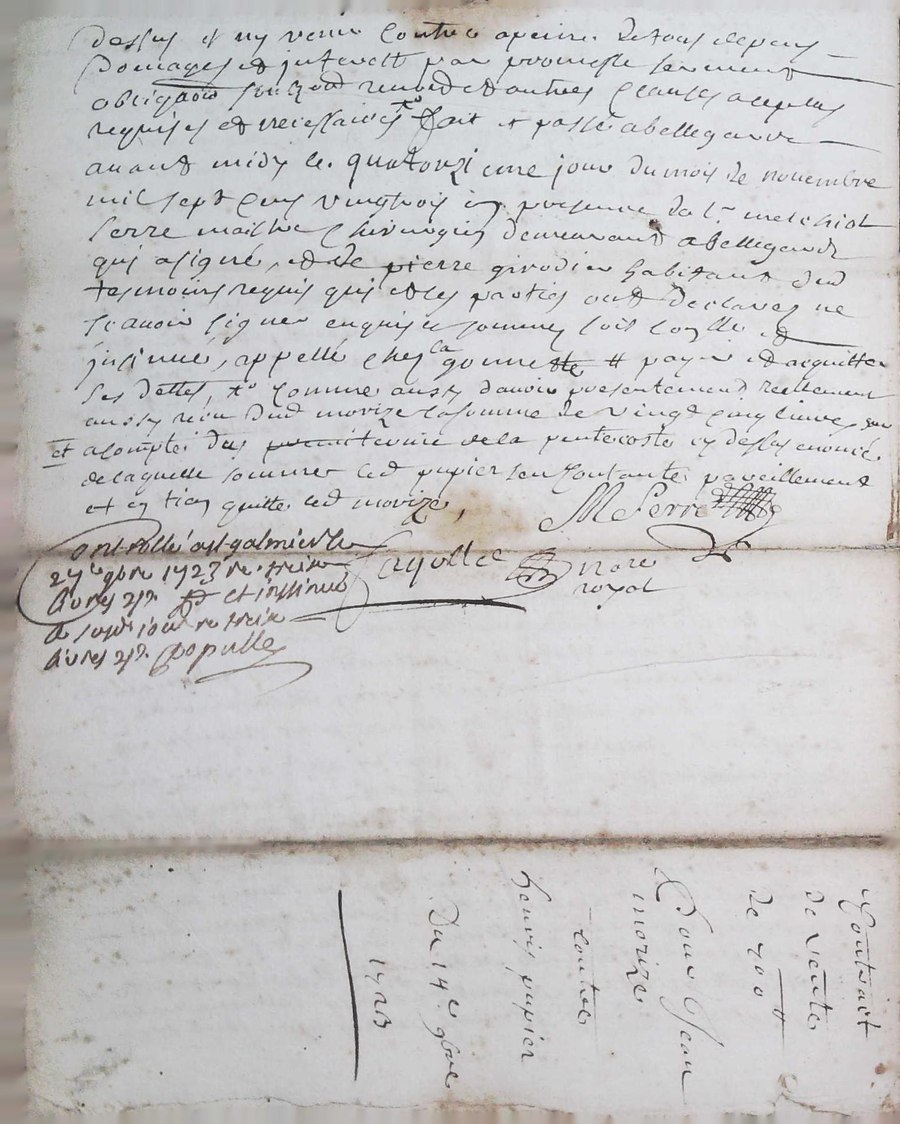 dessus et ny venir contre a peine de tous depens
Domages et interestz par promesse serment
obligaōn soubzond renond et autres Clauses a ce plus
requises et necessaires Fait et passé a bellegarde
auant midy le quatorzieme jour du mois de nouembre
mil sept Cens vingtrois en presence de Sr melchiol
serre maitre Chirurgien demeurant a bellegarde
qui a signé, et de pierre girodier habitant dud
tesmoins requis qui et les parties ont declarez ne
scauoir signer enquis et sommez soit Conllé et
insinué, appellé chez la gonnette # payer et acquitter
ses dettes, Comme aussy d'auoir presentement reellement
aussy receu dud morize la somme de vingt cinq liures sur
et a compte du terme de la pentecoste cy dessus enoncé
de laquelle somme led papier sen Contante pareillement
et en tien quitte led morize,
MSerre
Fayolle
nore
royal
Controllé a st galmier le
27e 9bre 1723 re. treize
liures 2s et insinué
led jour re treize
liures 2s populle
Contract
de vente
de 700 tt
Pour Jean
morize
Contre
henris papier
Du 14e 9bre
1723